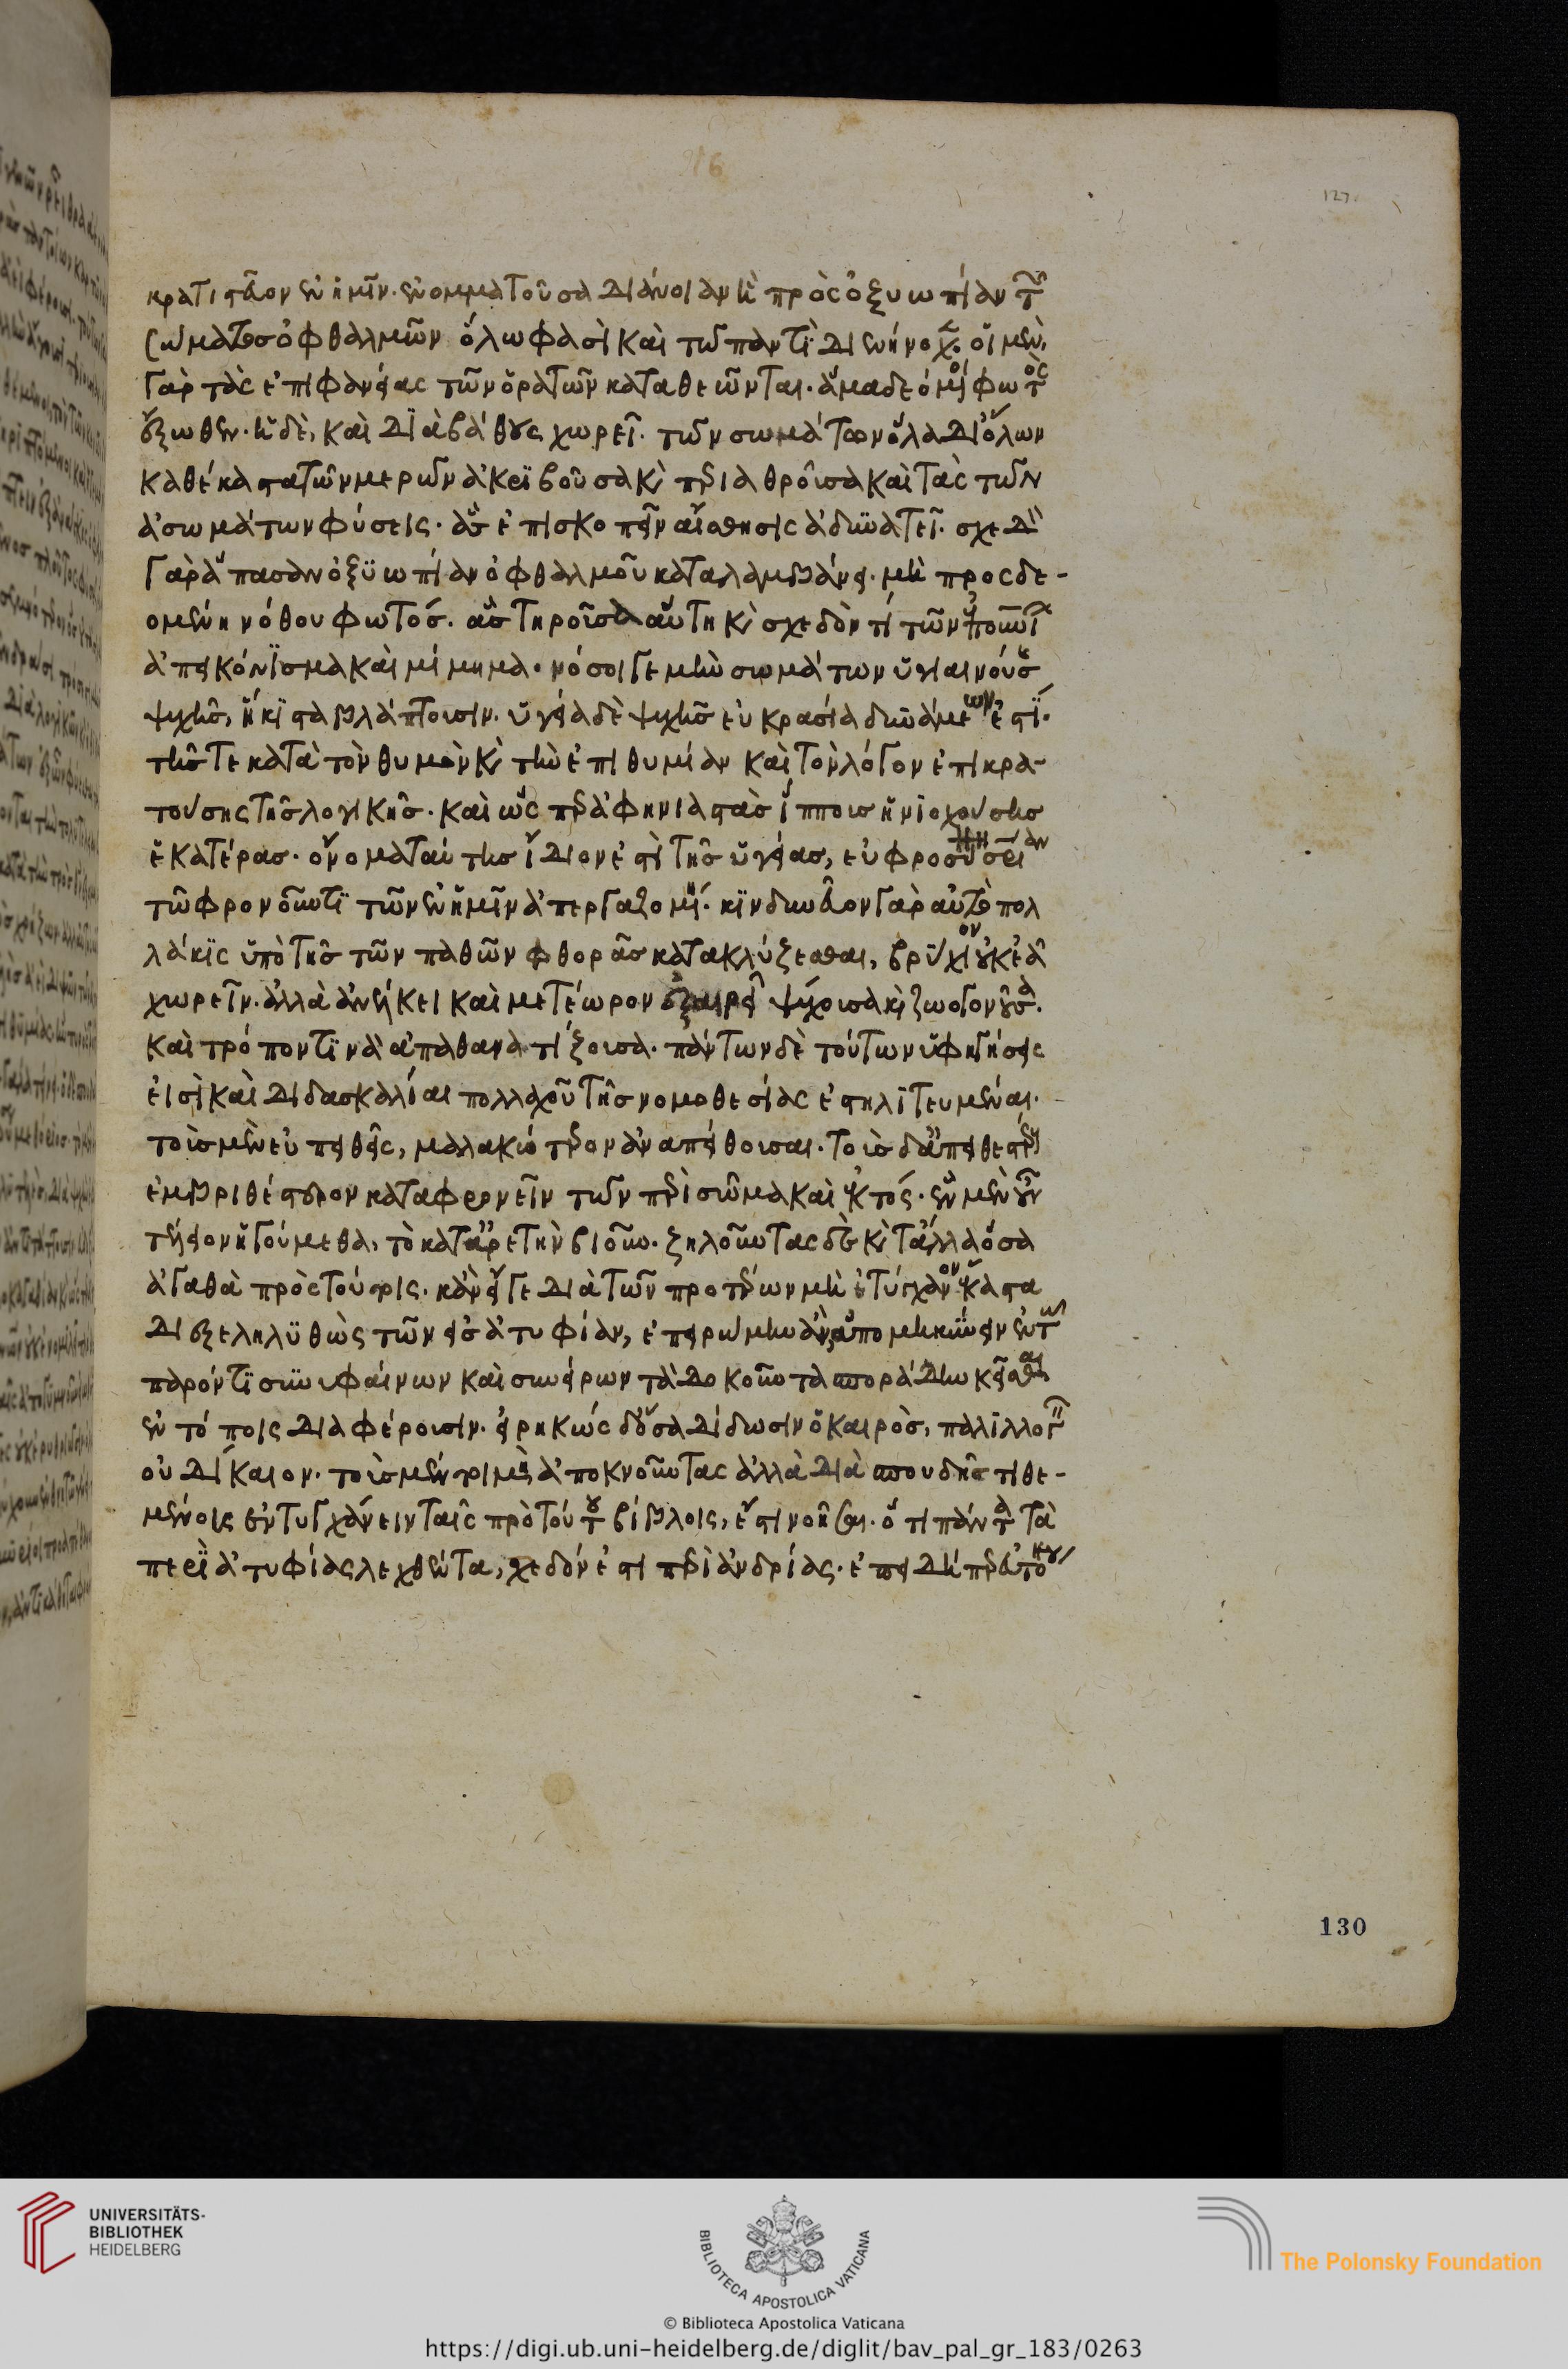 κράτιστον ἐν ἡμῖν. ἐνομματοῦσα διάνοιαν ἣ πρὸς ὀξυωπίαν τῶν
σώματος ὀφθαλμῶν ὅλω φασὶ καὶ τῶ παντὶ διενήνοχε. οἱ μὲν
γὰρ τὰς ἐπιφανείας τῶν ὁρατῶν καταθεῶνται. ἅμα δεόμενοι φωτὸς
ἔξωθεν. ἡ δὲ, καὶ διὰ βάθους χωρεῖ. τῶν σωμάτων ὅλα δι' ὅλων
καθέκαστα τῶν μερῶν ἀκριβοῦσα καὶ περιαθροῦσα καὶ τὰς τῶν
ἀσωμάτων φύσεις. ἃς ἐπισκοπεῖν αἴσθησις ἀδυνατεῖ. σχεδὸν
γὰρ ἅπασαν ὀξυωπίαν ὀφθαλμοῦ καταλαμβάνει. μὴ προσδε-
ομένη νόθου φωτός. ἀστὴρ οὖσα αὕτη καὶ σχεδόν τι τῶν
ἀπεικόνισμα καὶ μίμημα. νόσοι γε μὴν σωμάτων ὑγιαινούσης
ψυχῆς, ἥκιστα βλάπτουσιν. ὑγεία δὲ ψυχῆς εὐκρασία δυνάμεων ἐστί.
τῆς τε κατὰ τὸν θυμὸν καὶ τὴν ἐπιθυμίαν καὶ τὸν λόγον ἐπικρα-
τούσης τῆς λογικῆς. καὶ ὥσπερ ἀφηνιαστὰς ἵππους ἡνιοχούσης
ἑκατέρας. ὄνομα ταύτης ἴδιον ἐστὶ τῆς ὑγείας,
τῶ φρονοῦντι τῶν ἐν ἡμῖν ἀπεργαζομένη. κινδυνεῦον γὰρ αὐτὸ πολ
λάκις ὑπὸ τῆς τῶν παθῶν φθορᾶς κατακλύζεσθαι, βρύχιον οὐκ ἐᾶ
χωρεῖν. ἀλλὰ ἀνέλκει καὶ μετέωρον ἐξαίρει ψυχοῦσα καὶ ζωογονοῦσα.
καὶ τρόπον τινὰ ἀπαθανατίζουσα. πάντων δὲ τούτων ὑφηγήσεις
εἰσὶ καὶ διδασκαλίαι πολλαχοῦ τῆς νομοθεσίας ἐστηλιτευμέναι.
τοὺς μὲν εὐπειθεῖς, μαλακώτερον ἀναπείθουσαι. τοὺς δ' ἀπειθεστέρους
ἐμβριθέστερον καταφρονεῖν τῶν περὶ σῶμα καὶ ἐκτός. ἓν μὲν οὖν
τέλειον ἡγούμεθα, τὸ κατ' ἀρετὴν βιοῦν. ζηλοῦντας δὲ καὶ τἄλλα ὅσα
ἀγαθὰ πρὸς τοῦτ' ἐστὶς. κἂν εἴ γε διὰ τῶν προτέρων μὴ ἐτύγχανον ἕκαστα
διεξεληλυθὼς τῶν εἰς ἀτυφίαν, ἐπειρώμην ἂν ἀπομηκύνειν ἐν τῶ
παρόντι συνυφαίνων καὶ συνείρων τὰ δοκοῦντα σποράδην κεῖσθαι
ἐν τόποις διαφέρουσιν. εἰρηκὼς δ' ὅσα δίδωσιν ὁ καιρὸς, παλιλλογεῖν
οὐ δίκαιον. τοῖς μέντοι μὴ ἀποκνοῦντας ἀλλὰ διὰ σπουδῆς τιθε-
μένοις ἐντυγχάνειν ταῖς πρὸ τούτου βίβλοις, ἔστι νοῆσαι. ὅτι πάντα τὰ
περὶ ἀτυφίας λεχθέντα, σχεδόν ἐστι περὶ ἀνδρίας. ἐπειδὴ
130
UNIVERSITÄTS-
BIBLIOTHEK
HEIDELBERG
BIBLIOTECA APOSTOLICA VATICANA
The Polonsky Foundation
© Biblioteca Apostolica Vaticana
https://digi.ub.uni-heidelberg.de/diglit/bav_pal_gr_183/0263